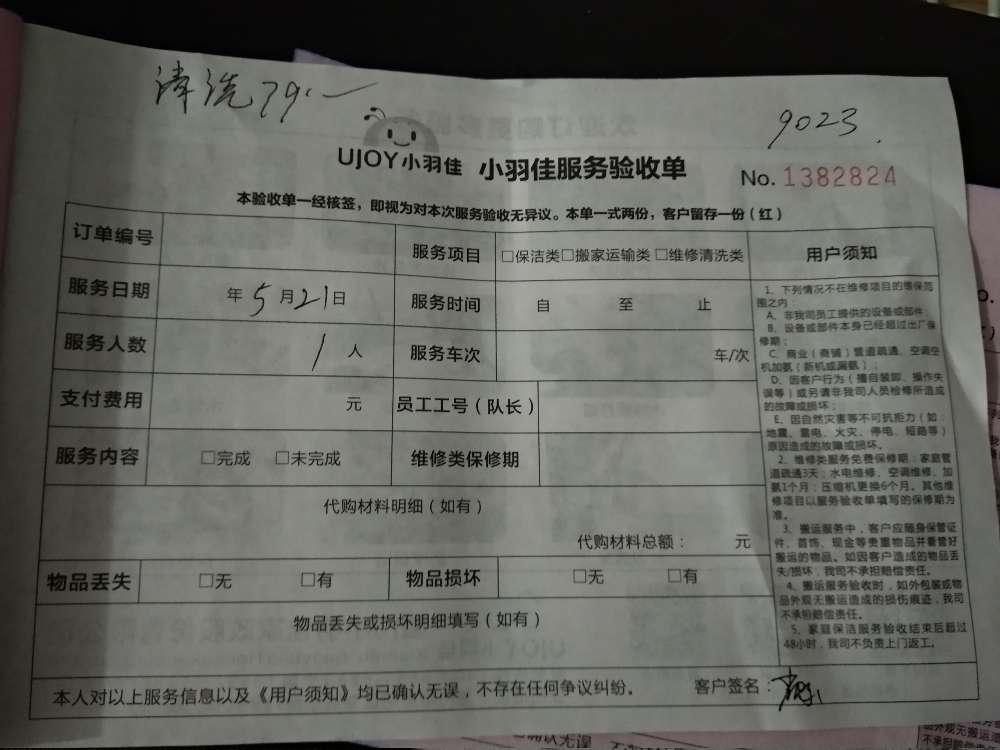 清洗79.一
9023
UJOY小羽佳 小羽佳服务验收单
No. 1382824
本验收单一经核签，即视为对本次服务验收无异议。本单一式两份，客户留存一份（红）
订单编号 服务项目 □保洁类□搬家运输类□维修清洗类
服务日期 年5月21日 服务时间 自 至 止
服务人数 1人 服务车次 车/次
支付费用 元 员工工号（队长）
服务内容 □完成 □未完成 维修类保修期
代购材料明细（如有）
代购材料总额： 元
物品丢失 □无 □有 物品损坏 □无 □有
物品丢失或损坏明细填写（如有）
用户须知
1、下列情况不在维修项目的维保范
围之内：
A、非我司员工提供的设备或部件；
B、设备或部件本身已经超过出厂保
修期；
C、商业（商铺）管道疏通、空调空
机加氨（新机或漏氨）；
D、因客户行为（擅自装卸、操作失
误等）或另请非我司人员检修所造成
的故障或损坏；
E、因自然灾害等不可抗拒力（如：
地震、雷电、火灾、停电、短路等）
原因造成的故障或损坏。
2、维修类服务免费保修期：家庭管
道疏通3天；水电维修、空调维修、加
氨1个月；压缩机更换6个月。其他维
修项目以服务验收单填写的保修期为
准。
3、搬运服务中，客户应随身保管证
件、首饰、现金等贵重物品并看管好
搬运的物品。如因客户造成的物品丢
失/损坏，我司不承担赔偿责任。
4、搬运服务验收时，如外包装或物
品外观无搬运造成的损伤痕迹，我司
不承担赔偿责任。
5、家庭保洁服务验收结束后超过
48小时，我司不负责上门返工。
本人对以上服务信息以及《用户须知》均已确认无误，不存在任何争议纠纷。 客户签名：